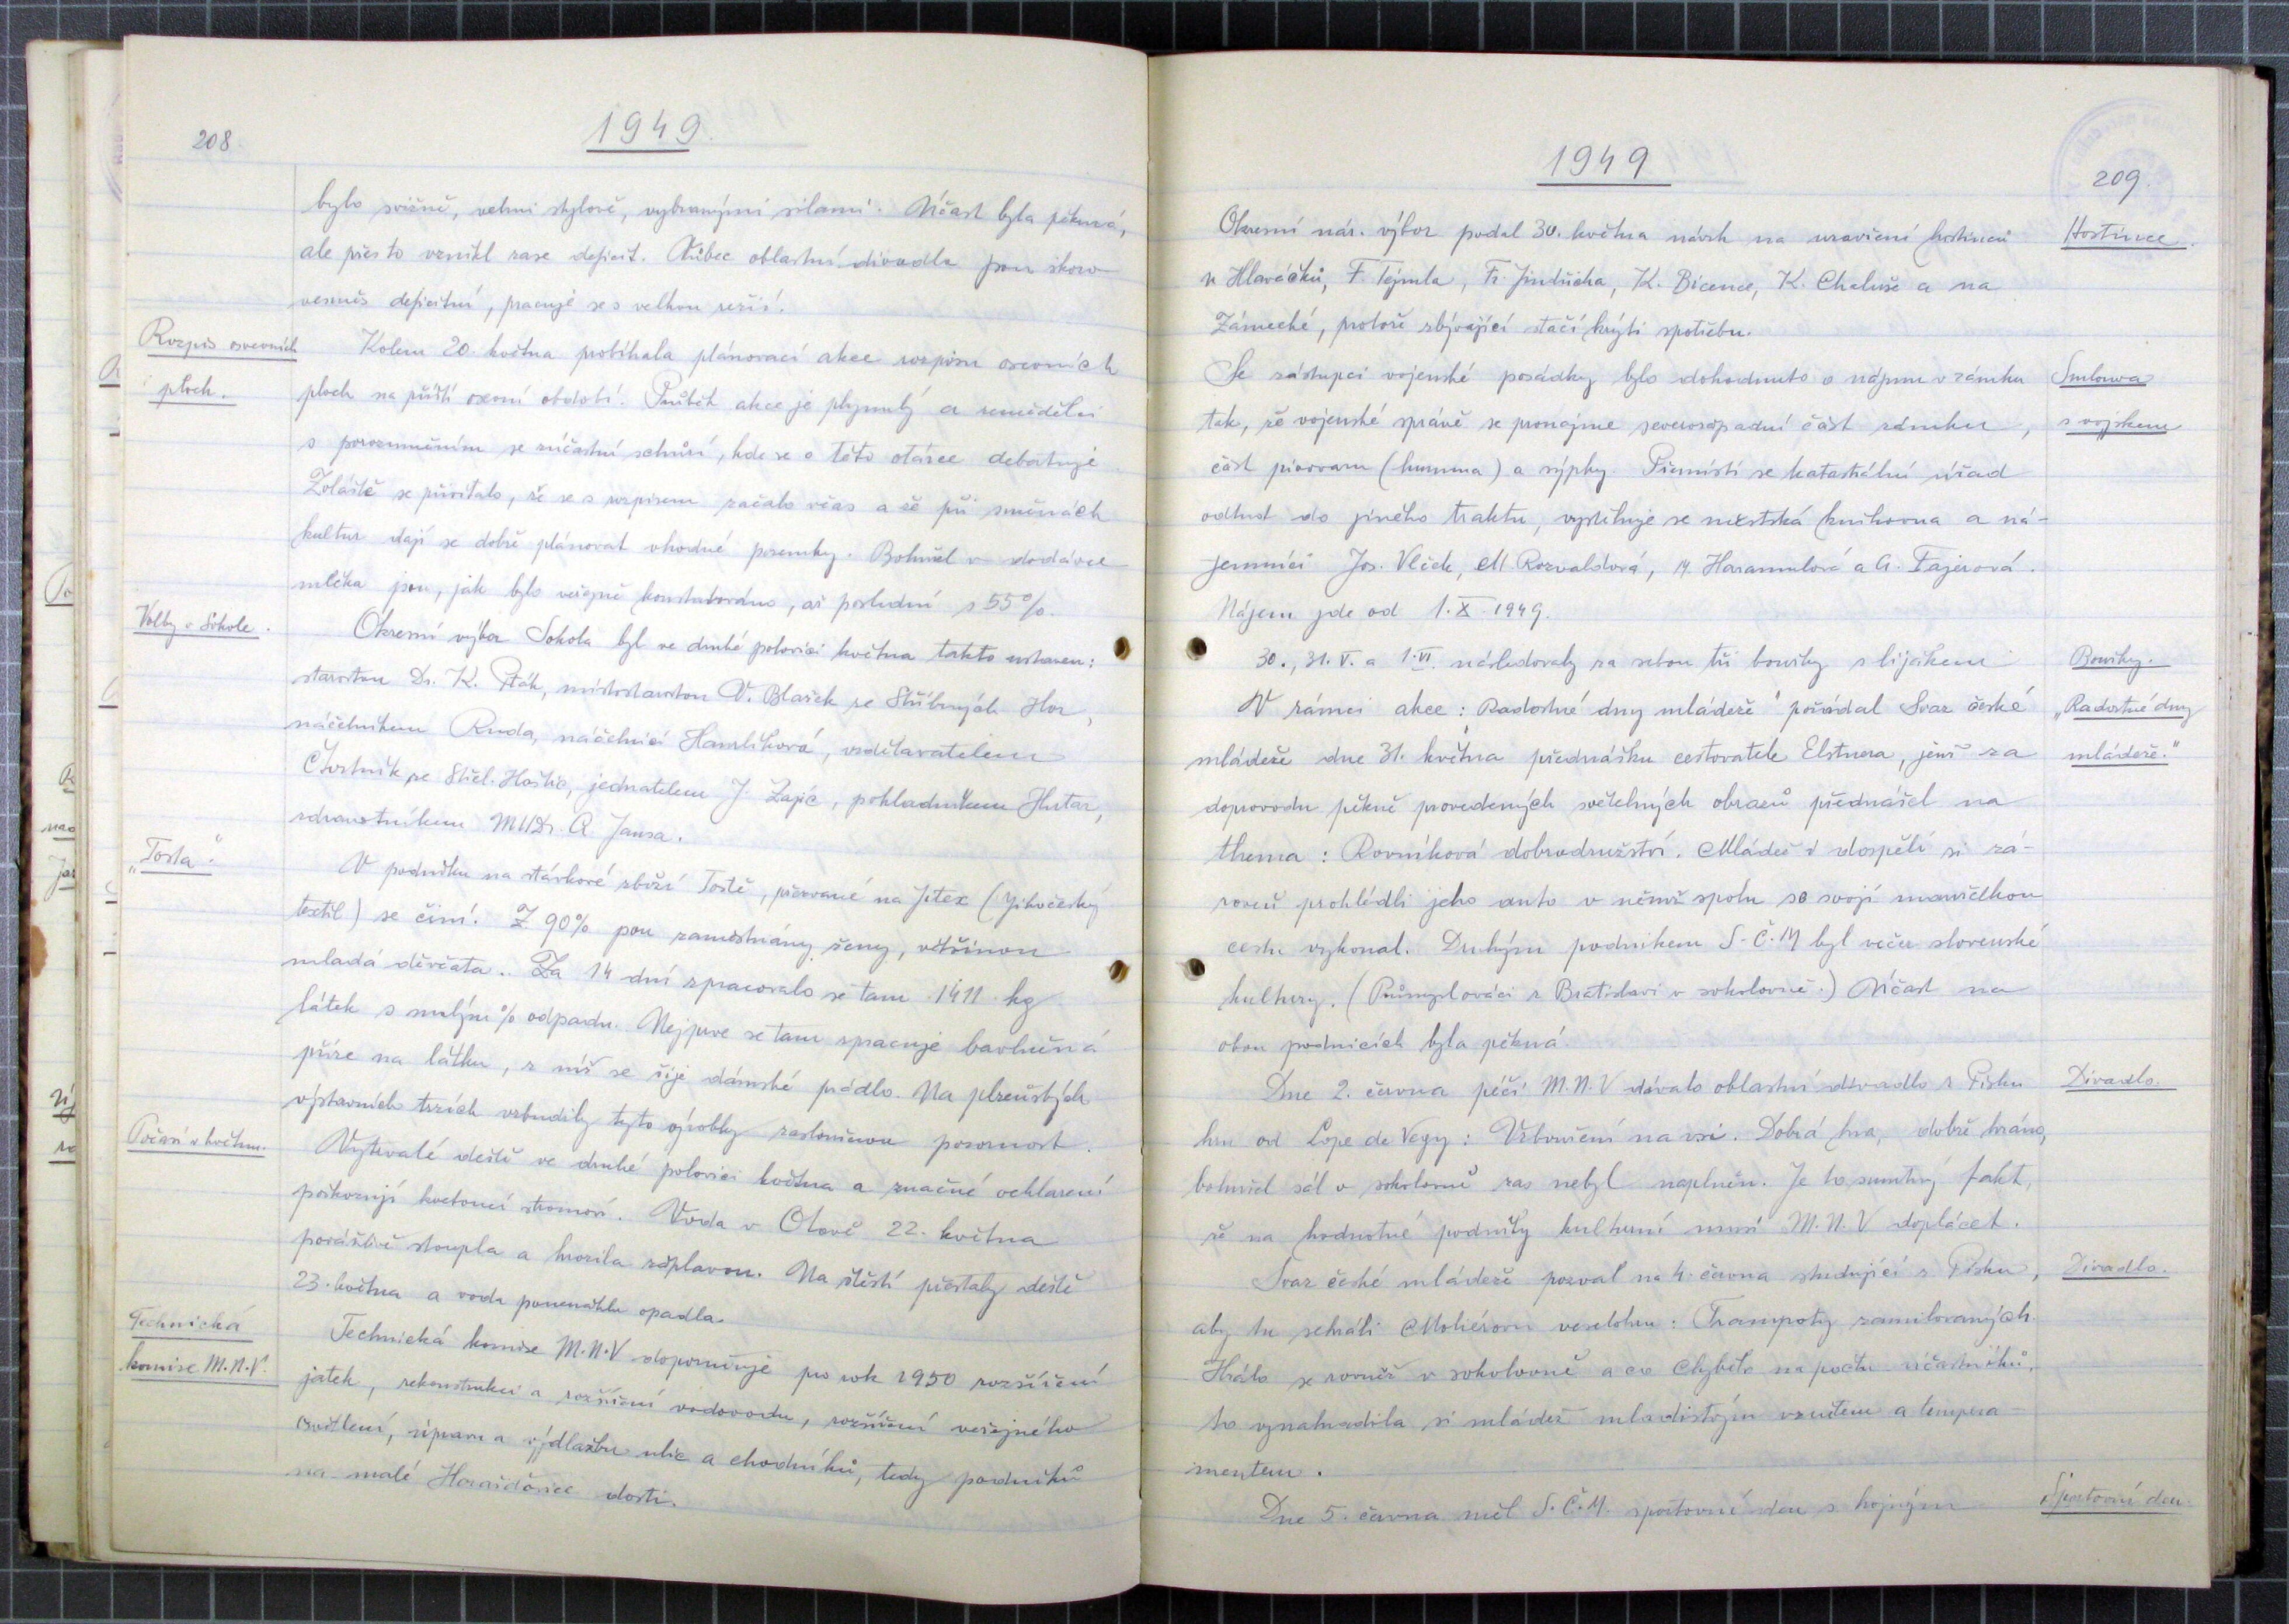 208
1949.
bylo svižně, velmi stylově, vybranými silami. Účast byla pěkná,
ale přes to vznikl zase deficit. Vůbec oblastní divadla jsou skoro
vesměs deficitní, pracuje se s velkou režií.
Rozpis osevních
ploch.
Kolem 20. května probíhala plánovací akce rozpisu osevních
ploch na příští osevní období. Průběh akce je plynulý a zemědělci
s porozuměním se zúčastní schůzí, kde se o této otázce debatuje
Zvláště se přivítalo, že se s rozpisem začalo včas a že při směnách
kultur dají se dobře plánovat vhodné pozemky. Bohužel v dodávce
mléka jsou, jak bylo veřejně konstatováno, až poslední s 55%.
Volby v Sokole.
Okresní výbor Sokola byl ve druhé polovici května takto ustaven:
starostou Dr. K. Pták, místostarostou V. Blažek ze Stříbrných Hor,
náčelníkem Ruda, náčelnicí Hamrlíková, vzdělavatelem
Čtvrtník ze Střel. Hoštic, jednatelem J. Zajíc, pokladníkem Hutar,
zdravotníkem MUDr. A. Jansa.
„Tosta".
V podniku na stávkové zboží Tostě, přezvané na Jitex (Jihočeský
textil) se činí. Z 90% jsou zaměstnány ženy, většinou
mladá děvčata. Za 14 dní zpracovalo se tam 1411 kg
látek s malým % odpadu. Nejprve se tam zpracuje bavlněná
příze na látku, z níž se šije dámské prádlo. Na plzeňských
výstavních trzích vzbudily tyto výrobky zaslouženou pozornost.
Počasí v květnu.
Vytrvalé deště ve druhé polovici května a značné ochlazení
poškozují kvetoucí stromoví. Voda v Otavě 22. května
povážlivě stoupla a hrozila záplavou. Na štěstí přestaly deště
23. května a voda ponenáhlu opadla.
Technická
komise M.N.V.
Technická komise M.N.V doporučuje pro rok 1950 rozšíření
jatek, rekonstrukci a rozšíření vodovodu, rozšíření veřejného
osvětlení, úpravu a výdlažbu ulic a chodníků, tedy podniků
na malé Horažďovice dosti.
1949
209.
Okresní nár. výbor podal 30. května návrh na uzavření hostinců
Hostince.
u Hlaváčků, F. Tejmla, Fr. Jindřicha, K. Bicence, K. Chaluše a na
Zámecké, protože zbývající stačí krýti spotřebu.
Se zástupci vojenské posádky bylo dohodnuto o nájmu v zámku
Smlouva
tak, že vojenské správě se pronajme severozápadní část zámku,
s vojskem
část pivovaru (humna) a sýpky. Přemístí se katastrální úřad
odtud do jiného traktu, vystěhuje se městská knihovna a ná-
jemníci Jos. Vlček, M. Rozvaldová, M. Harammlová a A. Fajerová.
Nájem jde od 1. X. 1949.
30., 31. V. a 1. VI. následovaly za sebou tři bouřky s lijákem
Bouřky.
V rámci akce: Radostné dny mládeže" pořádal Svaz české
„Radostné dny
mládeže dne 31. května přednášku cestovatele Elstnera, jenž za
mládeže."
doprovodu pěkně provedených světelných obrazů přednášel na
thema: Rovníková dobrodružství. Mládež i dospělí si zá-
roveň prohlédli jeho auto v němž spolu se svojí manželkou
cestu vykonal. Druhým podnikem S.Č.M byl večer slovenské
kultury. (Průmyslováci z Bratislavi v sokolovně.) Účast na
obou podnicích byla pěkná.
Dne 2. června péčí M.N.V dávalo oblastní divadlo z Písku
Divadlo.
hru od Lope de Vegy: Vzbouření na vsi. Dobrá hra, dobře hráno,
bohužel sál v sokolovně zas nebyl naplněn. Je to smutný fakt,
že na hodnotné podniky kulturní musí M.N.V doplácet.
Svaz české mládeže pozval na 4. června studující z Písku,
Divadlo.
aby tu sehráli Molièrovu veselohru: Trampoty zamilovaných.
Hrálo se rovněž v sokolovně a co chybělo na počtu účastníků,
to vynahradila si mládež mladistvým vznětem a tempera-
mentem.
Dne 5. června měl S.Č.M. sportovní den s hojným
Sportovní den